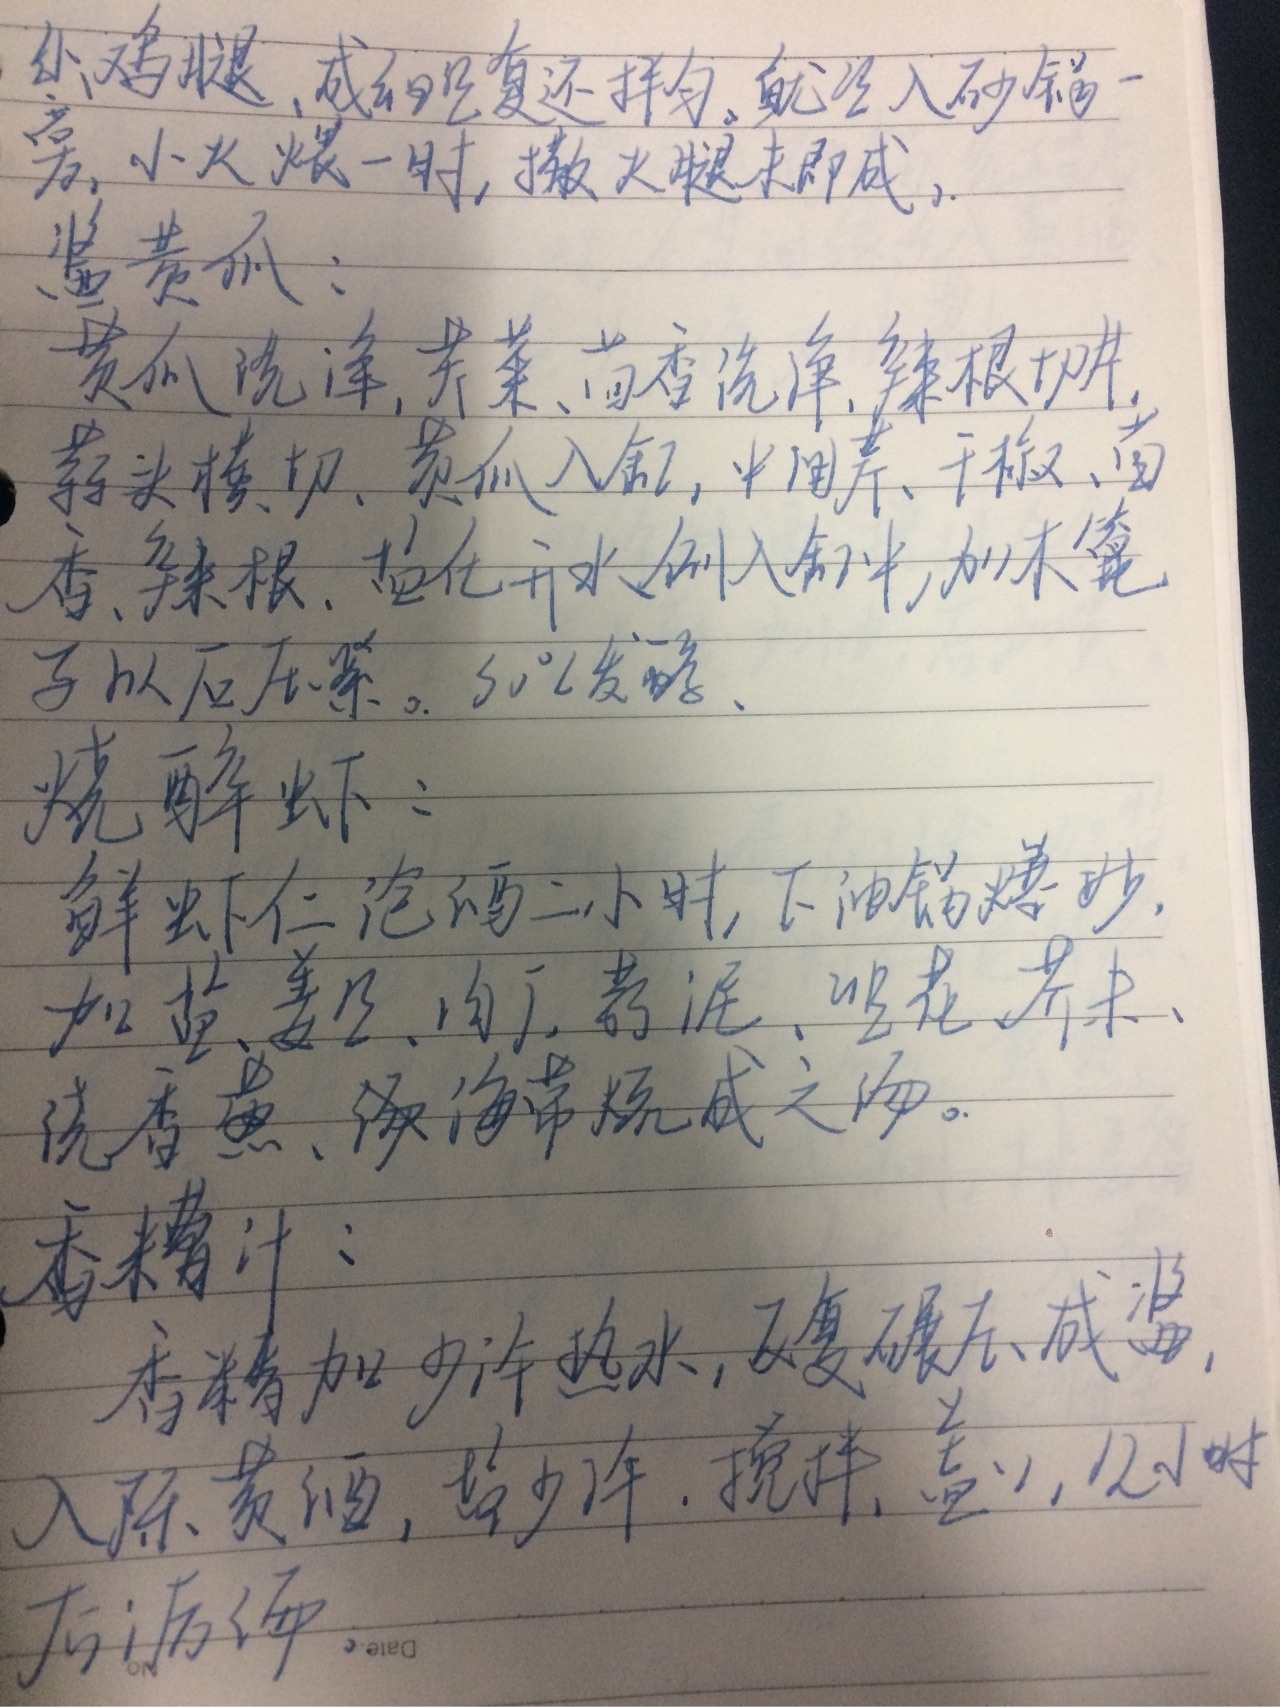 鸡腿、成细足复还拌匀。就足入砂锅一
旁,小火煨一时,撒火腿末即成。
酱黄瓜:
黄瓜洗净,芹菜、茴香洗净,辣根切片,
蒜头横切、黄瓜入缸,中间芹、干椒、茴
香、辣根、盐化开水倒入缸中,加木篦
子以石压紧。30℃发酵、
烧醉虾:
鲜虾仁泡酒二小时,下油锅爆炒,
加盐、姜足、肉丁,蒜泥、花、芹末、
浇香、海带烧成之汤。
香糟汁:
香糟加少许热水,反复碾压、成酱,
入陈黄酒,盐少许.搅拌,盖,12小时
后
Date.
No